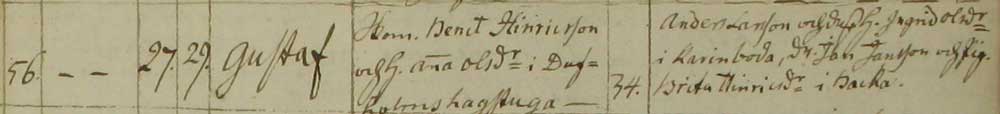 56. – – 27. 29. Gustaf
Skom. Bengt Hinricsson
och H. Ana olsdr i Duf=
holms hagstuga —
34.
Anders Larsson och dess H. Ingrid olsdr
i Karinboda, dr. Jan Jansson och pig.
Brita Hinricsdr i Backa.